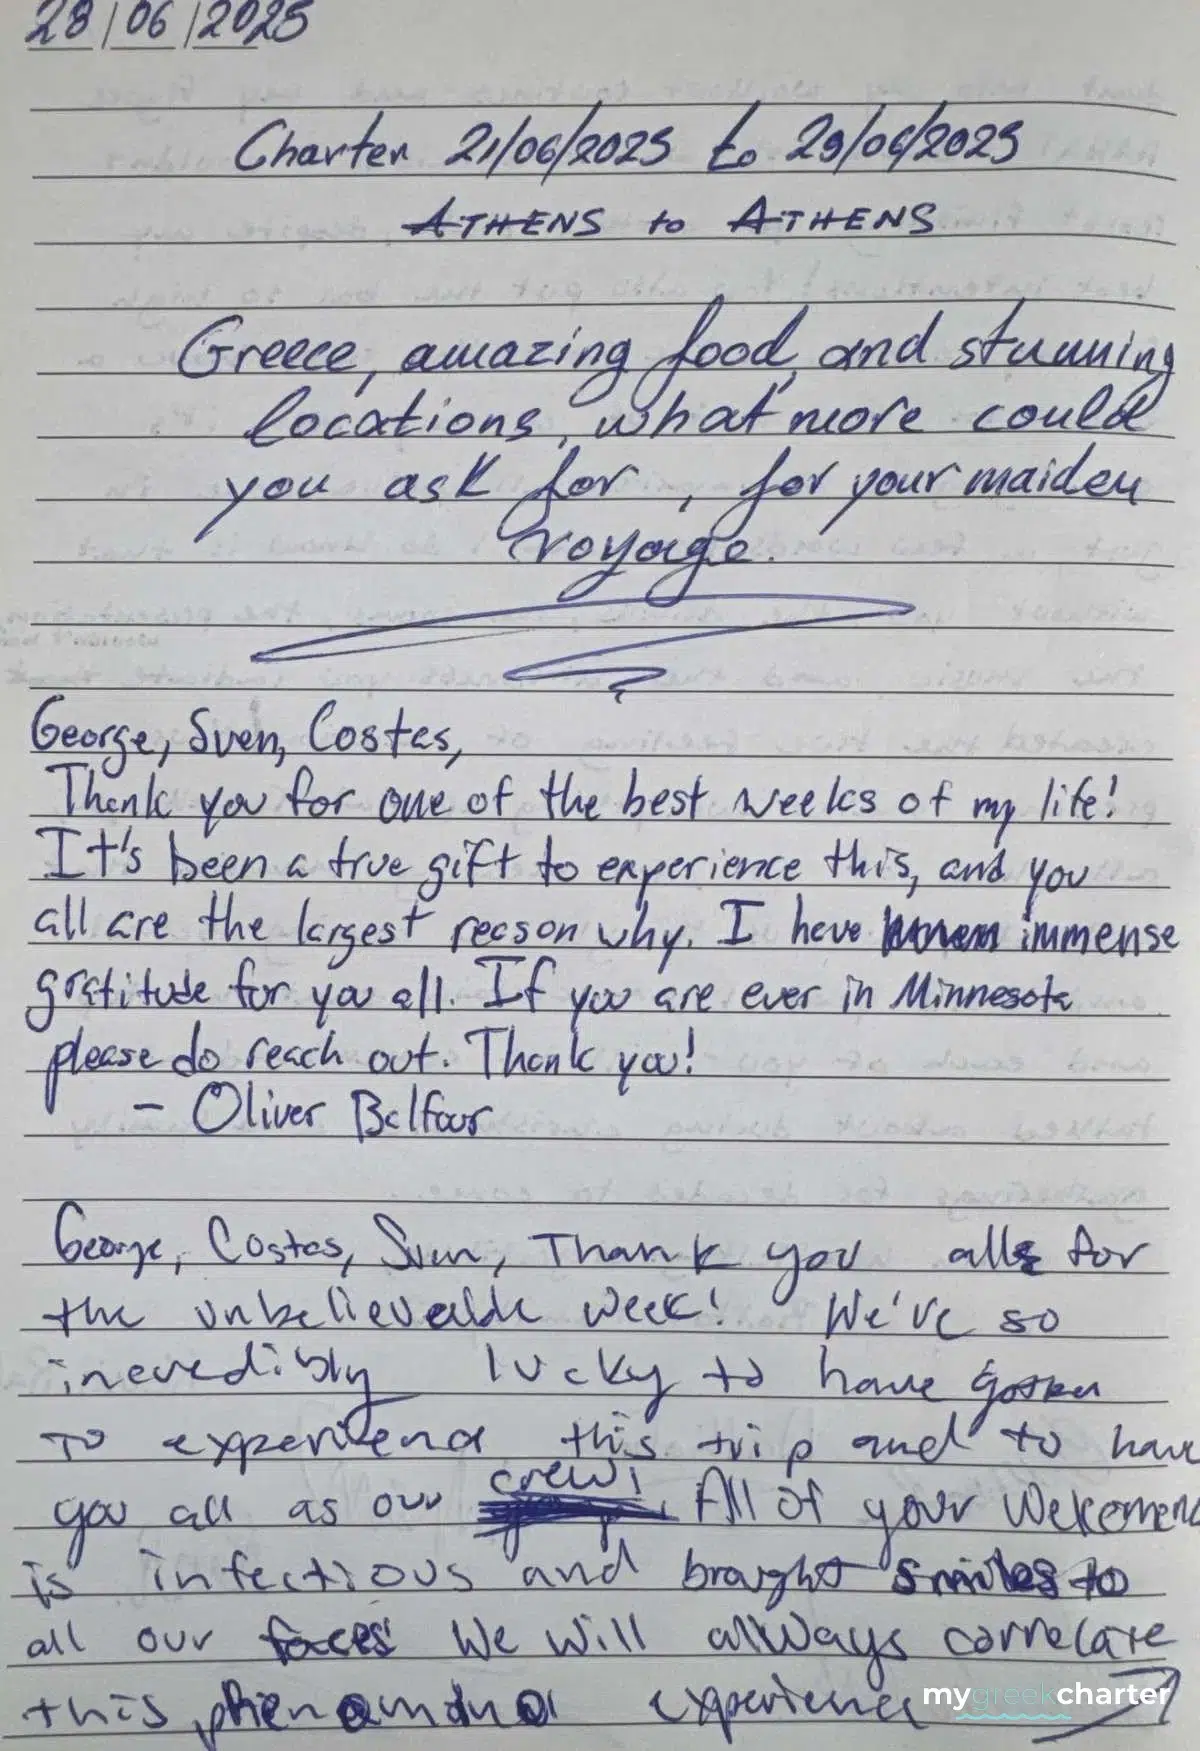 28/06/2025
Charter 21/06/2025 to 29/06/2025
ATHENS to ATHENS
Greece, amazing food, and stunning
locations, what more could
you ask for, for your maiden
voyage.
George, Sven, Costas,
Thank you for one of the best weeks of my life!
It's been a true gift to experience this, and you
all are the largest reason why. I have immense
gratitude for you all. If you are ever in Minnesota
please do reach out. Thank you!
- Oliver Balfour
George, Costas, Sven, Thank you all for
the unbelievable week! We've so
incredibly lucky to have gotten
to experience this trip and to have
you all as our crew! All of your
is infectious and brought smiles to
all our faces! We will always correlate
this phenomenal experience
mygreekcharter